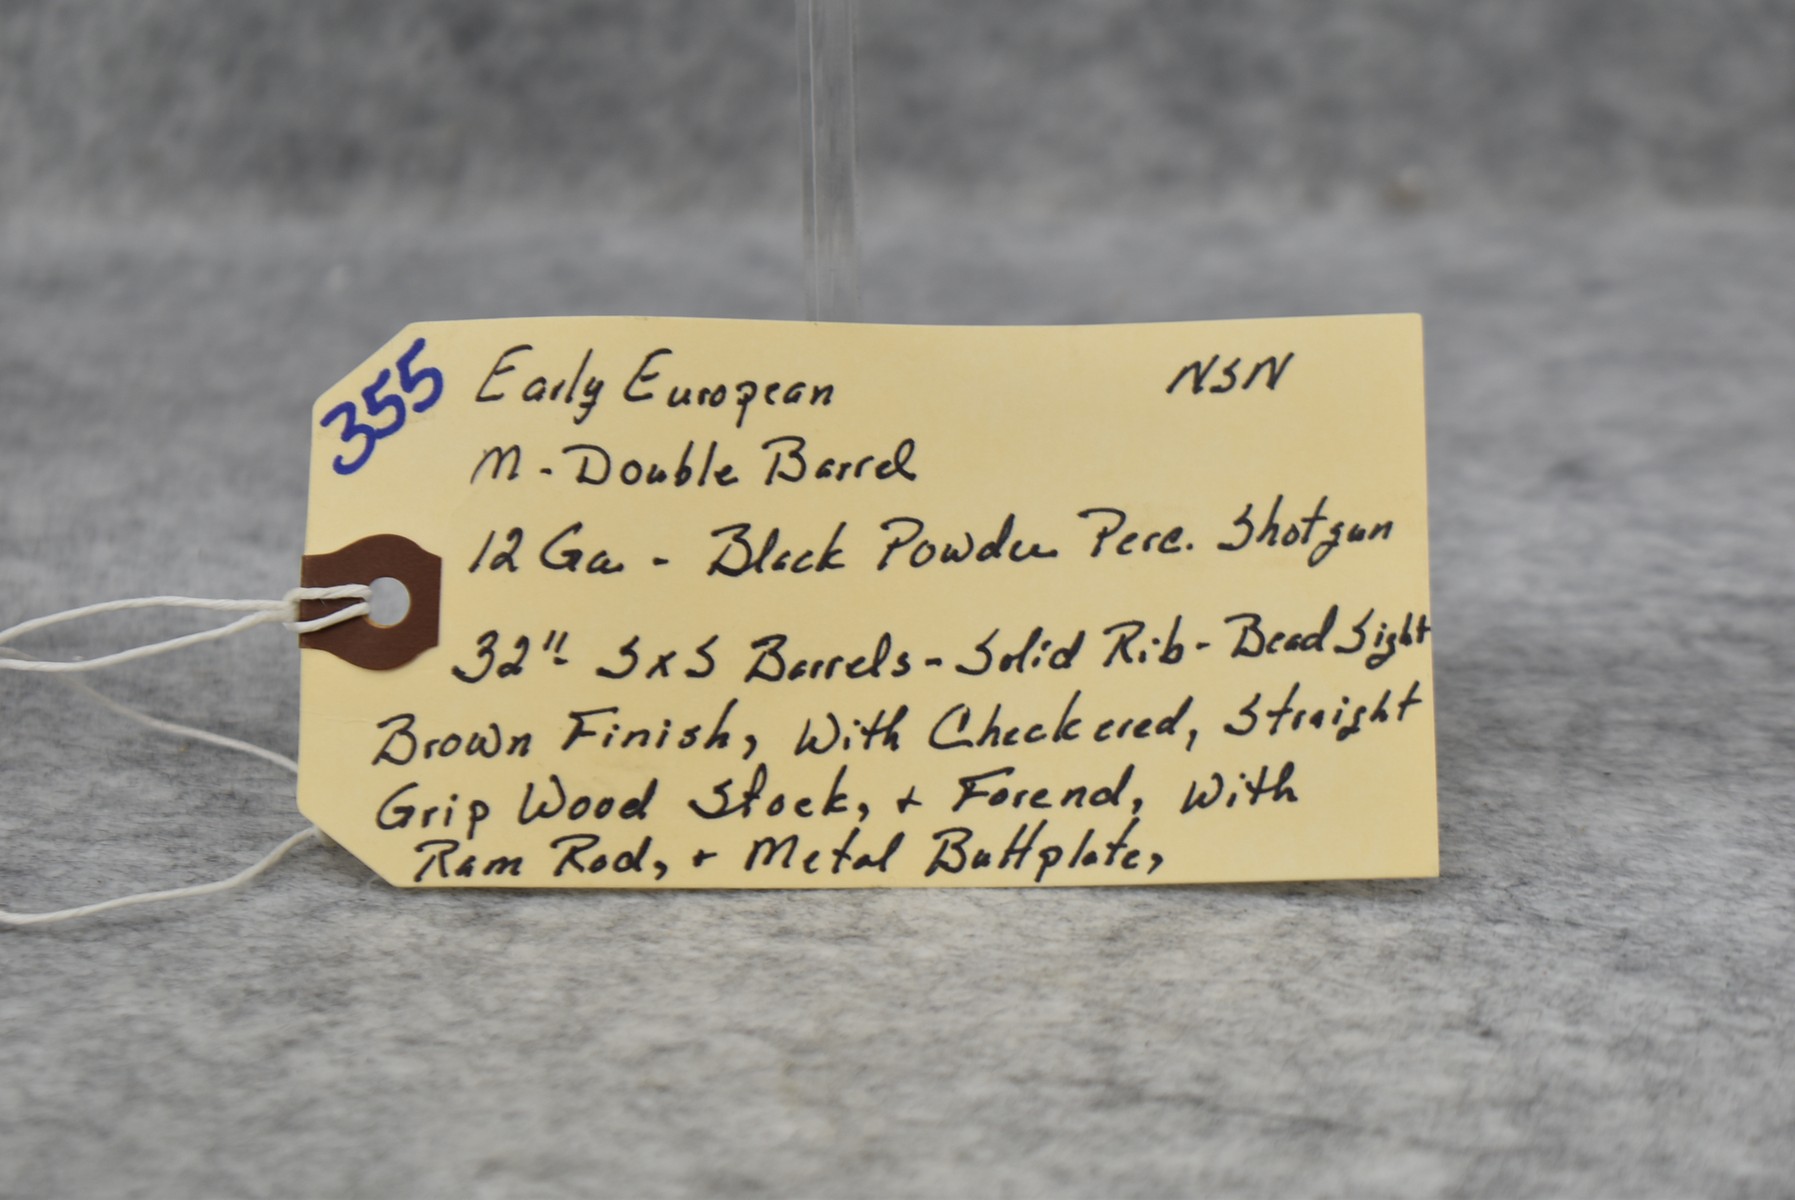 355
Early European NSN
M - Double Barrel
12 Ga - Black Powder Perc. Shotgun
32" - SxS Barrels - Solid Rib - Bead Sight
Brown Finish, With Checkered, Straight
Grip Wood Stock, + Forend, With
Ram Rod, + Metal Buttplate,